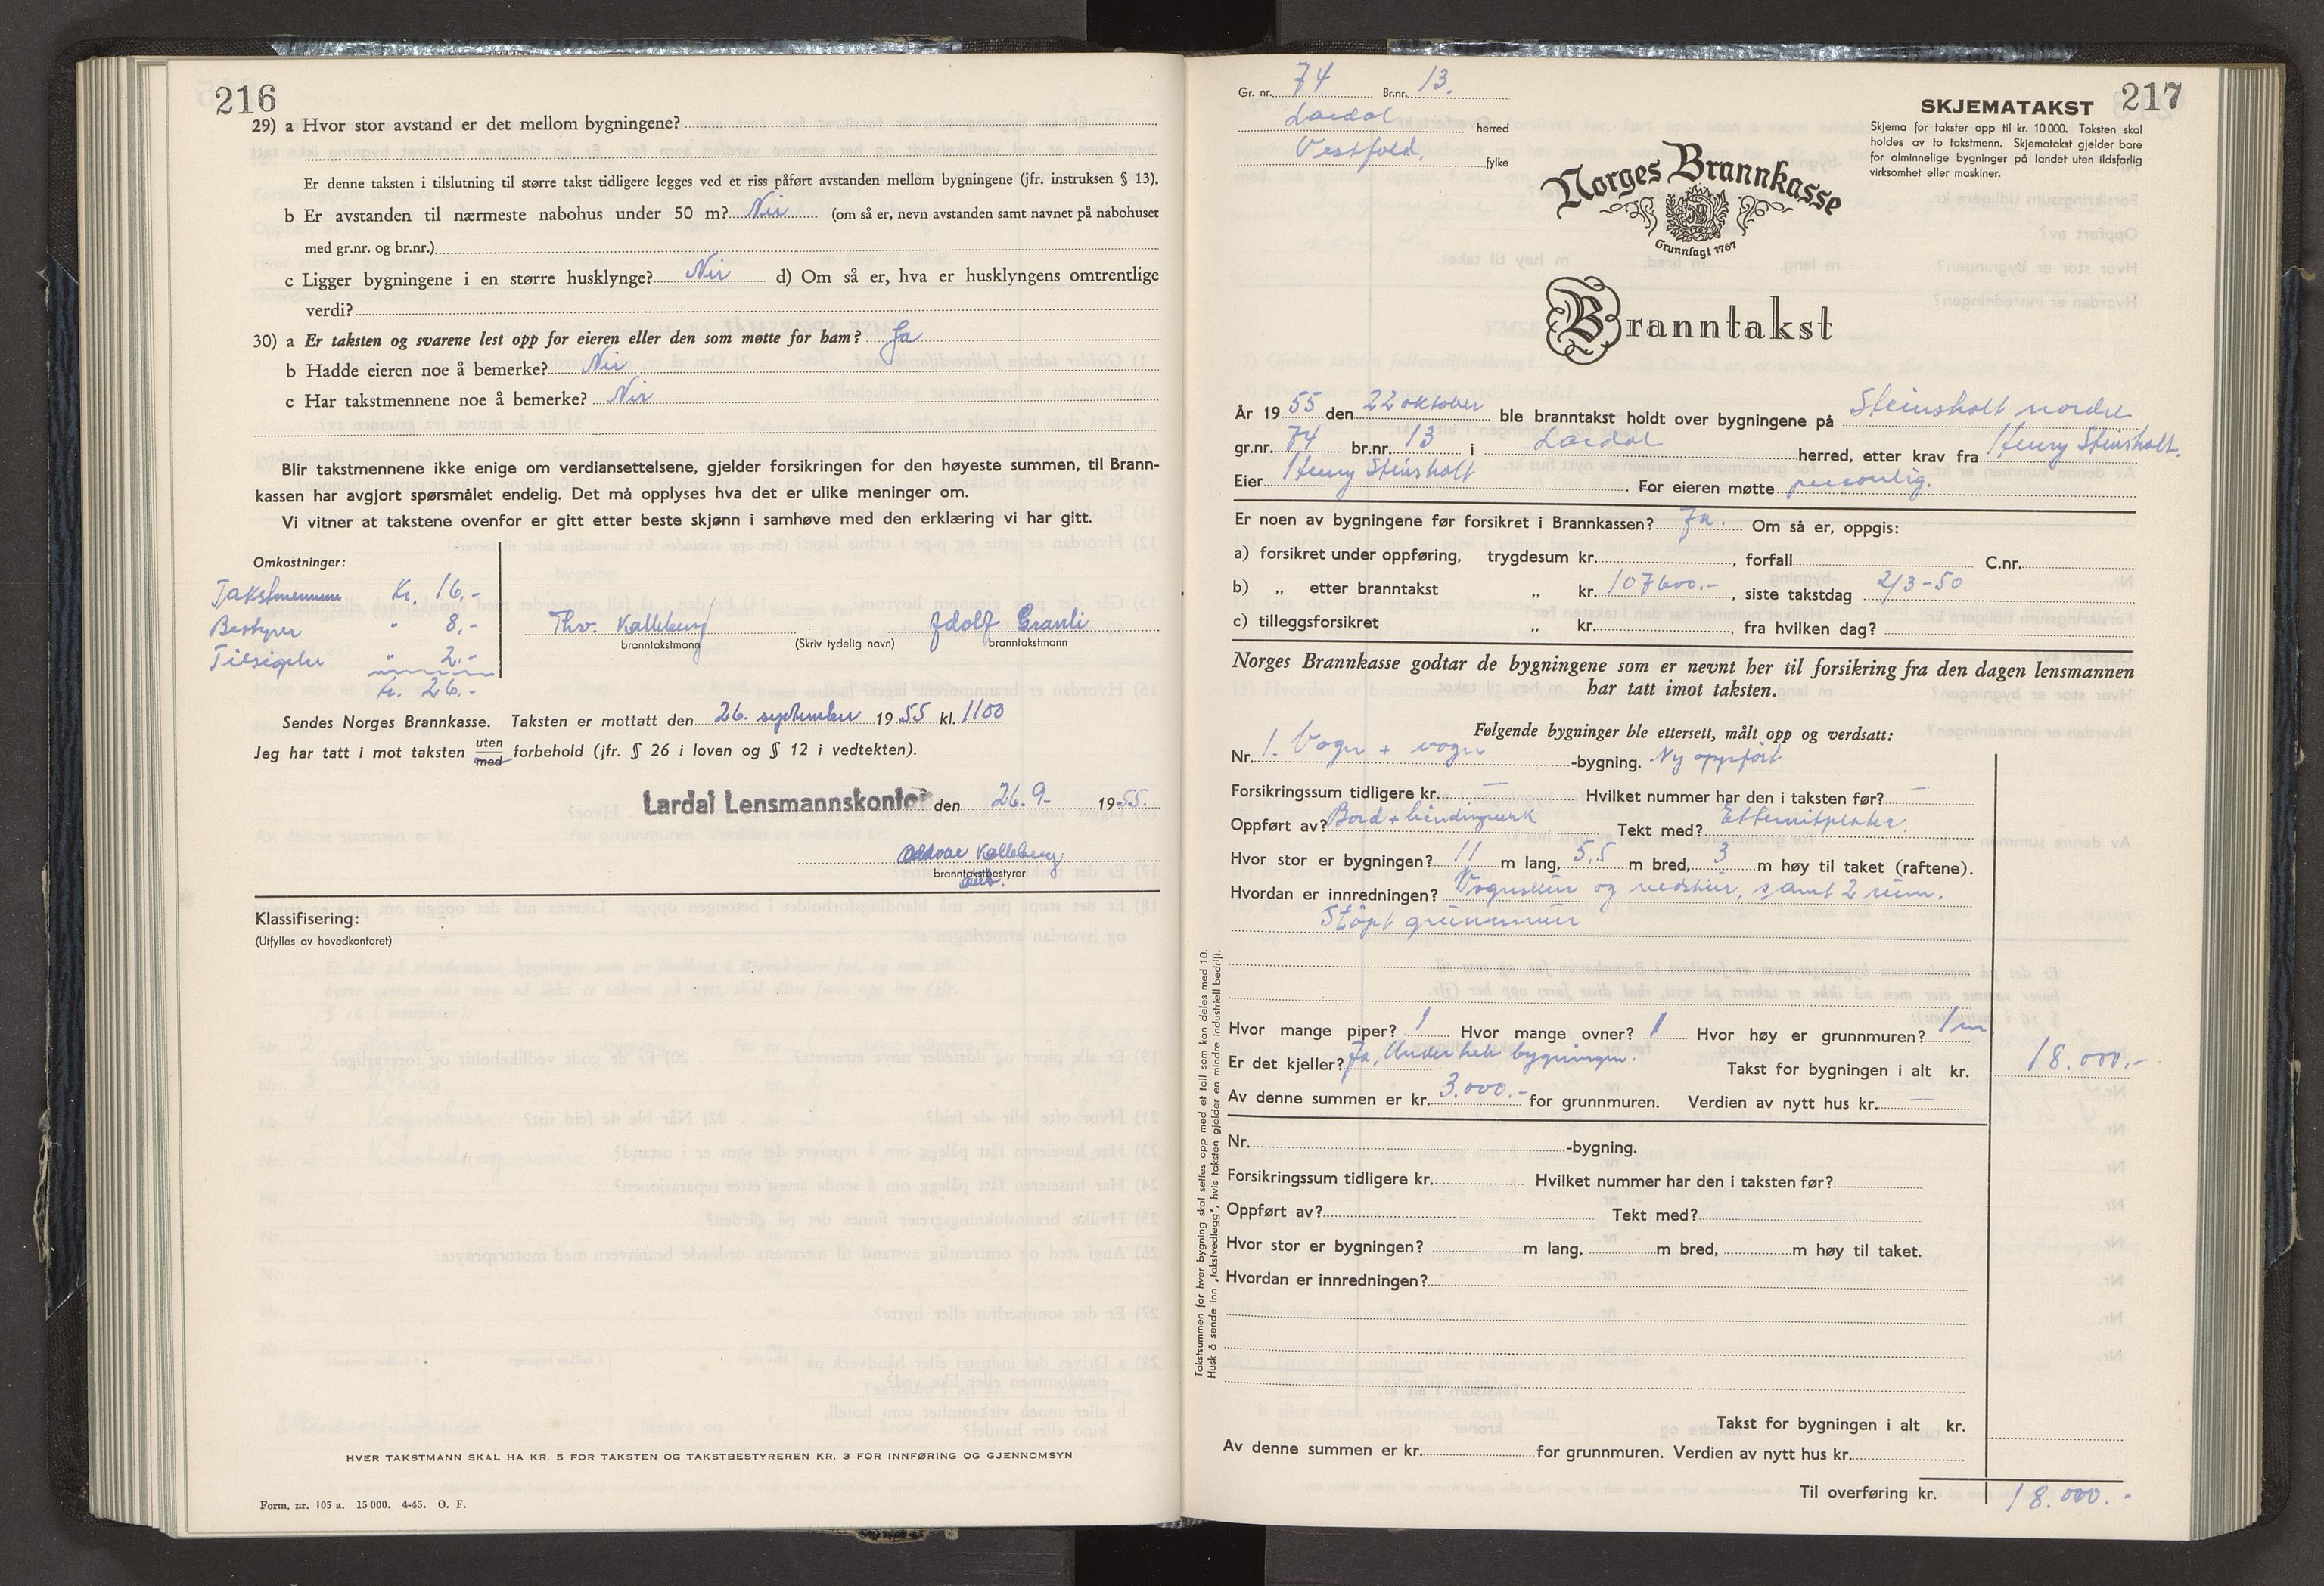 216
29) a Hvor stor avstand er det mellom bygningene?
Er denne taksten i tilslutning til større takst tidligere legges ved et riss påført avstanden mellom bygningene (jfr. instruksen § 13).
b Er avstanden til nærmeste nabohus under 50 m? Nei (om så er, nevn avstanden samt navnet på nabohuset
med gr.nr. og br.nr.)
c Ligger bygningene i en større husklynge? Nei d) Om så er, hva er husklyngens omtrentlige
verdi?
30) a Er taksten og svarene lest opp for eieren eller den som møtte for ham? Ja
b Hadde eieren noe å bemerke? Nei
c Har takstmennene noe å bemerke? Nei
Blir takstmennene ikke enige om verdiansettelsene, gjelder forsikringen for den høyeste summen, til Brann-
kassen har avgjort spørsmålet endelig. Det må opplyses hva det er ulike meninger om.
Vi vitner at takstene ovenfor er gitt etter beste skjønn i samhøve med den erklæring vi har gitt.
Omkostninger:
Takstmennene Kr. 16,-
Bestyrer " 8,-
Tilsigelse " 2,-
Kr. 26,-
Thv. Kalleberg Adolf Granli
branntakstmann (Skriv tydelig navn) branntakstmann
Sendes Norges Brannkasse. Taksten er mottatt den 26. september 1955 kl. 1100
Jeg har tatt i mot taksten uten
med forbehold (jfr. § 26 i loven og § 12 i vedtekten).
Lardal Lensmannskontor den 26.9. 1955.
Oddvar Kalleberg
branntakstbestyrer
Klassifisering:
(Utfylles av hovedkontoret)
HVER TAKSTMANN SKAL HA KR. 5 FOR TAKSTEN OG TAKSTBESTYREREN KR. 3 FOR INNFØRING OG GJENNOMSYN
Form. nr. 105 a. 15 000. 4-45. O. F.
217
Gr. nr. 74 Br.nr. 13.
Lardal herred
Vestfold, fylke
SKJEMATAKST
Skjema for takster opp til kr. 10 000. Taksten skal
holdes av to takstmenn. Skjematakst gjelder bare
for alminnelige bygninger på landet uten ildsfarlig
virksomhet eller maskiner.
Norges Brannkasse
Grunnlagt 1767
Branntakst
År 1955 den 22 oktober ble branntakst holdt over bygningene på Steinsholt nordre
gr.nr. 74 br.nr. 13 i Lardal herred, etter krav fra Henry Steinsholt.
Eier Henry Steinsholt. For eieren møtte personlig.
Er noen av bygningene før forsikret i Brannkassen? Ja. Om så er, oppgis:
a) forsikret under oppføring, trygdesum kr. , forfall C.nr.
b) „ etter branntakst „ kr. 107600.- , siste takstdag 2/3-50
c) tilleggsforsikret „ kr. , fra hvilken dag?
Norges Brannkasse godtar de bygningene som er nevnt her til forsikring fra den dagen lensmannen
har tatt imot taksten.
Følgende bygninger ble ettersett, målt opp og verdsatt:
Nr. 1. Vogn + vogn -bygning. Ny oppført
Forsikringssum tidligere kr. — Hvilket nummer har den i taksten før? —
Oppført av? Bord + bindingverk Tekt med? Etternitplater.
Hvor stor er bygningen? 11 m lang, 5,5 m bred, 3 m høy til taket (raftene).
Hvordan er innredningen? Vognskur og vedskur, samt 2 rum.
Støpt grunnmur
Hvor mange piper? 1 Hvor mange ovner? 1 Hvor høy er grunnmuren? 1 m
Er det kjeller? Ja, Under hele bygningen. Takst for bygningen i alt kr. 18.000.-
Av denne summen er kr. 3.000.- for grunnmuren. Verdien av nytt hus kr. —
Nr. -bygning.
Forsikringssum tidligere kr. Hvilket nummer har den i taksten før?
Oppført av? Tekt med?
Hvor stor er bygningen? m lang, m bred, m høy til taket.
Hvordan er innredningen?
Takst for bygningen i alt kr.
Av denne summen er kr. for grunnmuren. Verdien av nytt hus kr.
Til overføring kr. 18.000.-
Takstsummen for hver bygning skal settes opp med et tall som kan deles med 10.
Husk å sende inn „takstvedlegg", hvis taksten gjelder en mindre industriell bedrift.